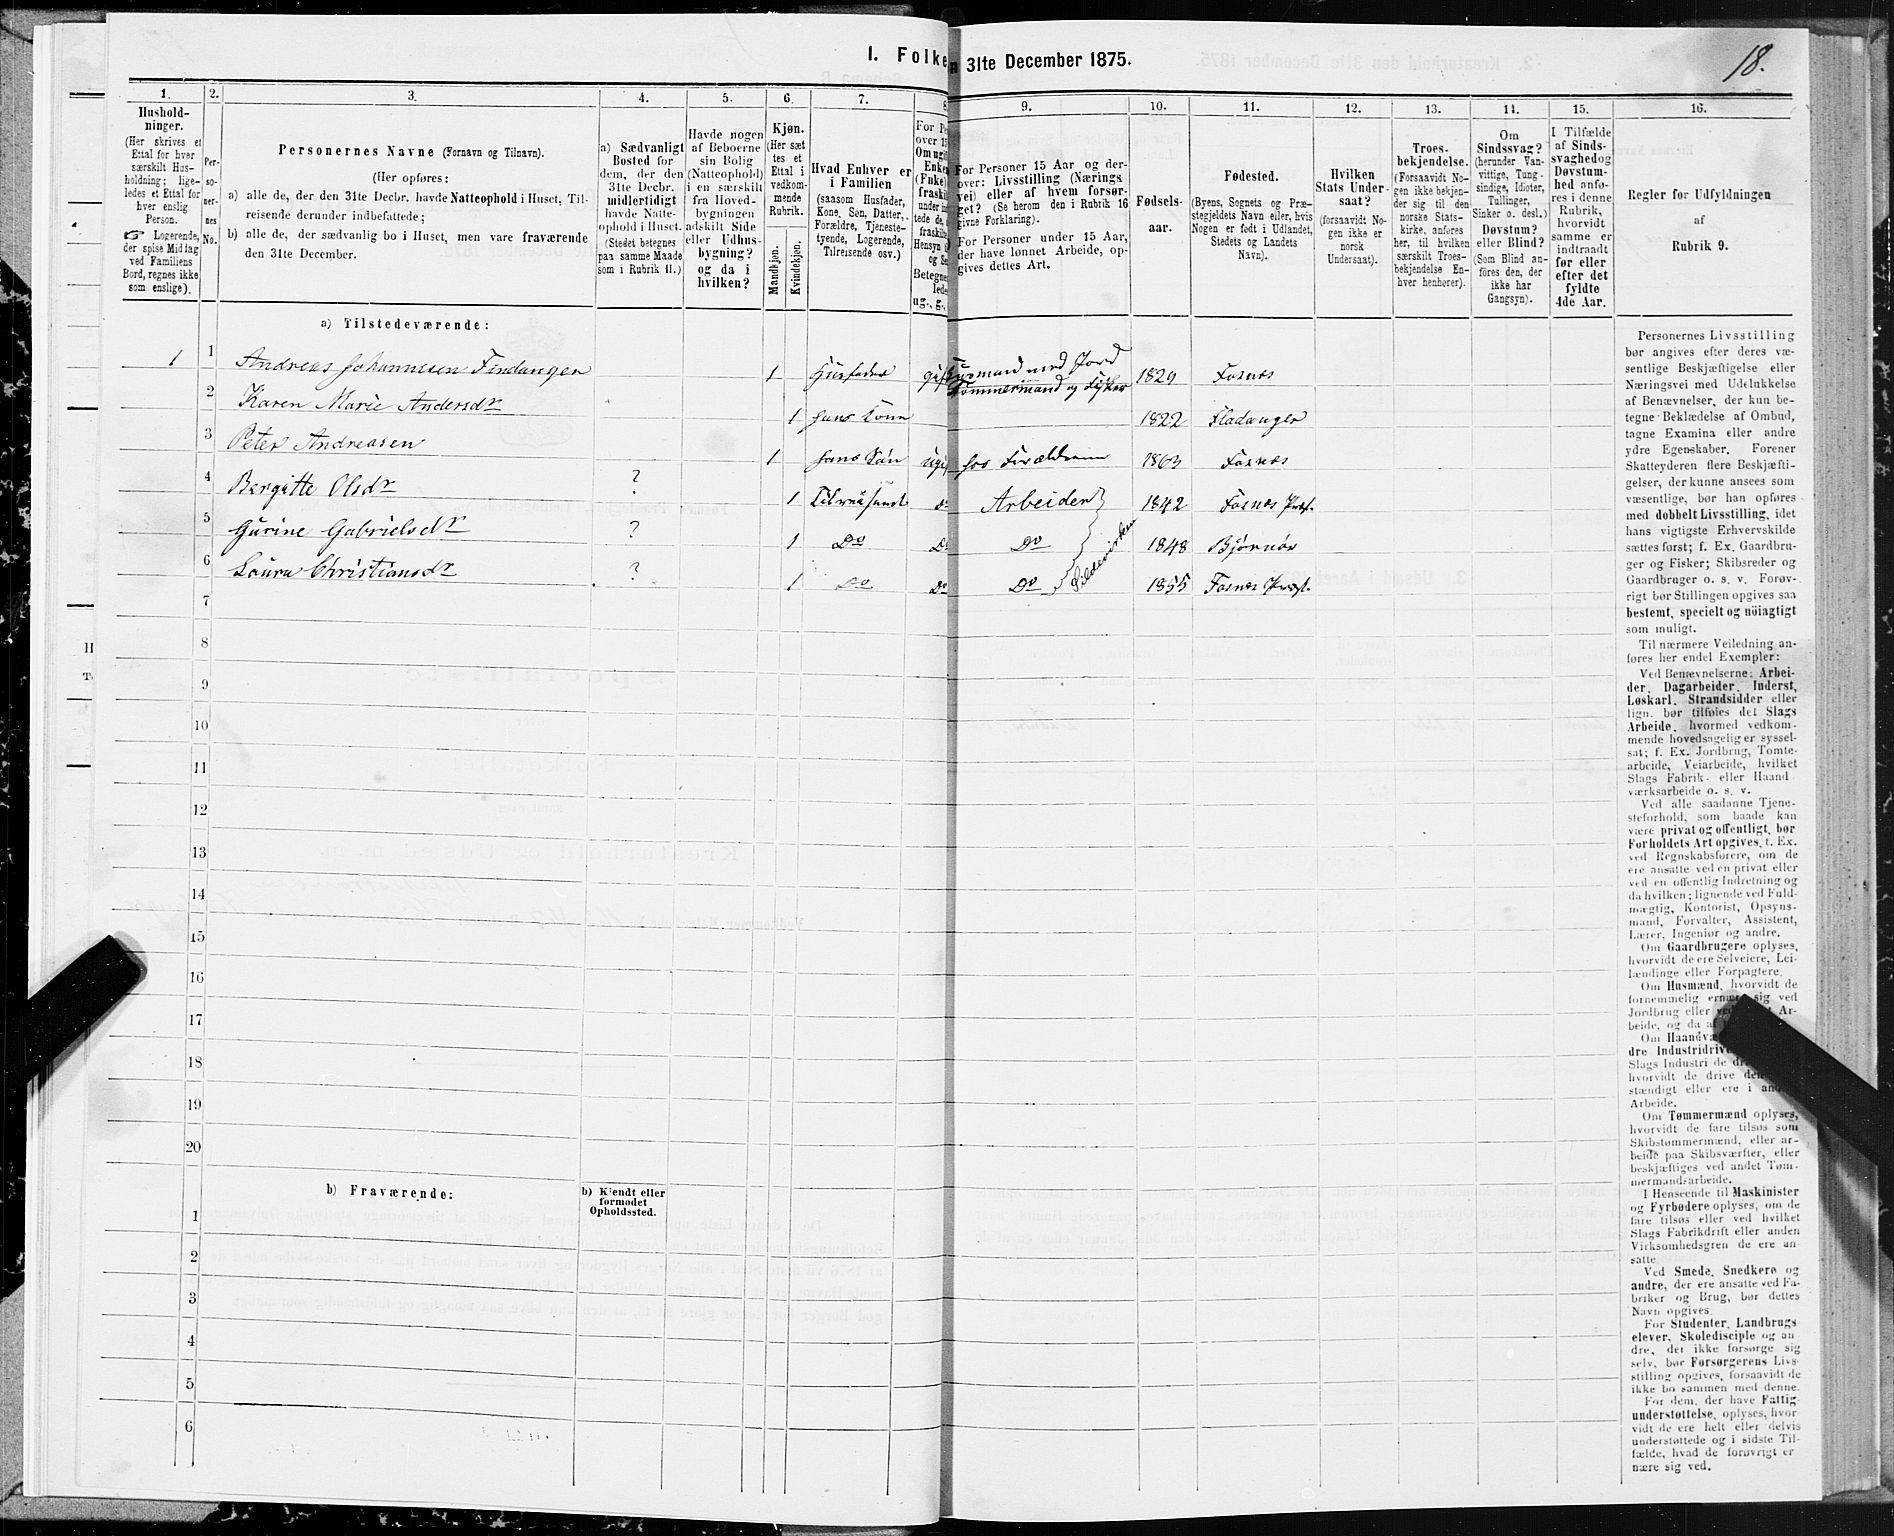 18.
1. Folke
n 31te December 1875.
1.
2.
3.
4.
5.
6.
7.
8
9.
10.
11.
12.
13.
14.
15.
16.
Hushold-
ninger.
(Her skrives et
Ettal for hver
særskilt Hus-
holdning; lige-
ledes et Ettal for
hver enslig
Person.
☞ Logerende,
der spise Middag
ved Familiens
Bord, regnes ikke
som enslige).
Per-
so-
ner-
nes
No.
Personernes Navne (Fornavn og Tilnavn).
(Her opføres:
a) alle de, der den 31te Decbr. havde Natteophold i Huset, Til-
reisende derunder indbefattede;
b) alle de, der sædvanlig bo i Huset, men vare fraværende
den 31te December.
a) Sædvanligt
Bosted for
dem, der den
31te Decbr.
midlertidigt
havde Natte-
ophold i Huset.
(Stedet betegnes
paa samme Maade
som i Rubrik 11.)
Havde nogen
af Beboerne
sin Bolig
(Natteophold)
i en særskilt
fra Hoved-
bygningen
adskilt Side
eller Udhus-
bygning?
og da i
hvilken?
Kjøn.
(Her sæt
tes et
Ettal i
vedkom-
mende
Rubrik.
Mandkjøn.
Kvindekjøn.
Hvad Enhver er
i Familien
(saasom Husfader,
Kone, Søn, Datter,
Forældre, Tjeneste-
tyende, Logerende,
Tilreisende osv.)
For Pe
over 15
Om ugif
Enke
(Fnke)
fraskil
under in
tede de,
fraskilt
Hensyn i
og Se
Betegne
lede
ug., g.,
For Personer 15 Aar og der-
over: Livsstilling (Nærings
vei) eller af hvem forsør-
get? (Se herom den i Rubrik 16
givne Forklaring).
For Personer under 15 Aar,
der have lønnet Arbeide, op-
gives dettes Art.
Fødsels-
aar.
Fødested.
(Byens, Sognets og Præ-
stegjeldets Navn eller, hvis
Nogen er født i Udlandet,
Stedets og Landets
Navn).
Hvilken
Stats Under-
saat?
(forsaavidt No-
gen ikke er
norsk
Undersaat).
Troes-
bekjendelse.
(Forsaavidt No-
gen ikke bekjen-
der sig til den
norske Stats-
kirke, anføres
her, til hvilken
særskilt Troes-
bekjendelse En-
hver henhører).
Om
Sindssvag?
(herunder Van-
vittige, Tung-
sindige, Idioter,
Tullinger,
Sinker o. desl.)
Døvstum?
eller Blind?
(Som Blind an-
føres den, der
ikke har
Gangsyn).
I Tilfælde
af Sinds-
svaghedog
Døvstum-
hed anfø-
res i denne
Rubrik,
hvorvidt
samme er
indtraadt
før eller
efter det
fyldte
4de Aar.
Regler for Udfyldningen
af
Rubrik 9.
a) Tilstedeværende:
1 1 Andreas Johannesen Findanger 1 Husfader gift Husmand med Jord
Tømmermand og Fisker 1829 Fosnes
2 Karen Marie Andersdr 1 hans Kone 1822 Fladanger
3 Peter Andreasen 1 hans Søn ugif hos Forældrene 1863 Fosnes
4 Bergitte Olsdr ? 1 Tilreisende do Arbeider 1842 Fosnes Præst.
5 Gurine Gabrielsdr ? 1 Do Do Do 1848 Bjørnør
6 Laura Christiansdr ? 1 Do Do Do 1855 Fosnes Præst.
Sildevirken
7
8
9
10
11
12
13
14
15
16
17
18
19
20
b) Fraværende:
b) Kjendt eller
formodet
Opholdssted.
1
2
3
4
5
6
Personernes Livsstilling
bør angives efter deres væ-
sentlige Beskjæftigelse eller
Næringsvei med Udelukkelse
af Benævnelser, der kun be-
tegne Beklædelse af Ombud,
tagne Examina eller andre
ydre Egenskaber. Forener
Skatteyderen flere Beskjæfti-
gelser, der kunne ansees som
væsentlige, bør han opføres
med dobbelt Livsstilling, idet
hans vigtigste Erhvervskilde
sættes først; f. Ex. Gaardbru-
ger og Fisker; Skibsreder og
Gaardbruger o. s. v. Forøv-
rigt bør Stillingen opgives saa
bestemt, specielt og nöiagtigt
som muligt.
Til nærmere Veiledning an-
føres her endel Exempler:
Ved Benævnelserne: Arbei-
der, Dagarbeider, Inderst,
Løskarl, Strandsidder eller
lign. bør tilføies det Slags
Arbeide, hvormed vedkom-
mende hovedsagelig er syssel-
sat; f. Ex. Jordbrug, Tomte-
arbeide, Veiarbeide, hvilket
Slags Fabrik- eller Haand-
værksarbeide o. s. v.
Ved alle saadanne Tjene-
steforhold, som baade kan
være privat og offentligt, bør
Forholdets Art opgives, t. Ex.
ved Regnskabsførere, om de
ere ansatte ved en privat eller
ved en offentlig Indretning og
da hvilken; lignende ved Fuld-
mægtig, Kontorist, Opsyns-
mand, Forvalter, Assistent,
Lærer, Ingeniør og andre.
Om Gaardbrugere oplyses,
hvorvidt de ere Selveiere, Lei-
lændinge eller Forpagtere.
Om Husmænd, hvorvidt de
fornemmelig ernære sig ved
Jordbrug eller ved Ar-
beide, og da af
Om Haandvæ
dre Industridrive
Slags Industri de dri
hvorvidt de drive den
stændigt eller ere i andres
Arbeide.
Om Tømmermænd oplyses,
hvorvidt de fare tilsøs som
Skibstømmermænd, eller ar-
beide paa Skibsværfter, eller
beskjæftiges ved andet Tøm-
mermandsarbeide.
I Henseende til Maskinister
og Fyrbødere oplyses, om de
fare tilsøs eller ved hvilket
Slags Fabrikdrift eller anden
Virksomhedsgren de ere an-
satte.
Ved Smede, Snedkere og
andre, der ere ansatte ved Fa-
briker og Brug, bør dettes
Navn opgives.
For Studenter, Landbrugs-
elever, Skoledisciple og an-
dre, der ikke forsørge sig
selv, bør Forsørgerens Livs-
stilling opgives, forsaavidt de
ikke bo sammen med denne.
For dem, der have Fattig-
understøttelse, oplyses, hvor-
vidt de ere helt eller delvis
understøttede og i sidste Til-
fælde, hvad de forøvrigt er
nære sig ved.